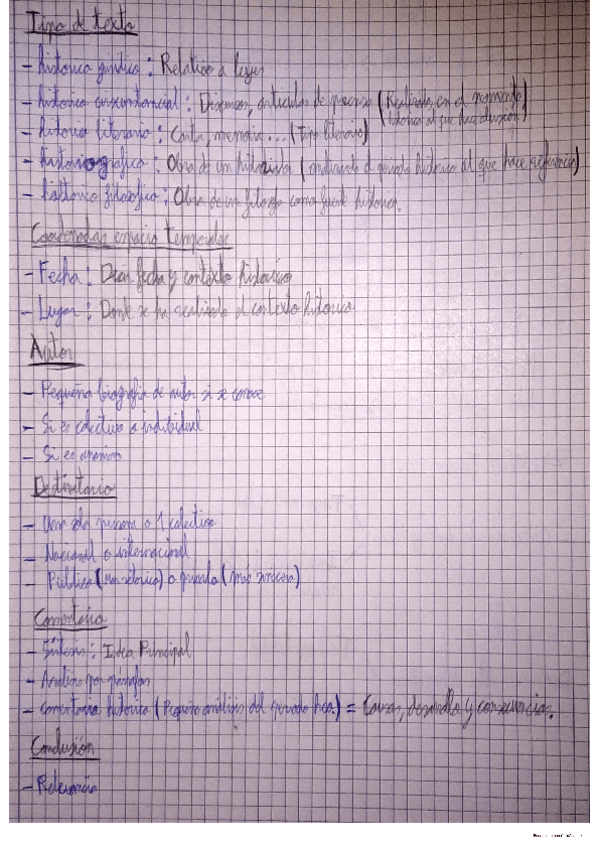 Tipo de texto
- histórico jurídico : Relativo a leyes
- histórico circunstancial : Discursos, artículos de prensa (Realizados en el momento
histórico al que hace alusión)
- historico literario : Carta, memoria... (Tipo literario)
- historiografico : Obra de un historiador ( el periodo historico al que hace referencia)
- histórico filosofico : Obra de un filosofo como fuente historica.
Coordenadas espacio temporales
- Fecha : Decir fecha y contexto historico
- Lugar : Donde se ha realizado el contexto hitorico
Autor
- Pequeña biografia de autor si se conoce
- Si es colectivo o individual
- Si es anonimo
Destinatario
- Una sola persona o 1 colectivo
- Nacional o internacional
- Público (Mas retorico) o privado (mas sincero)
Comentario
- Síntesis : Idea Principal
- Analisis por parrafos
- comentario historico (Pequeño análisis del periodo hco.) = Causas, desarrollo y consecuencias.
Conclusión
- Relevancia